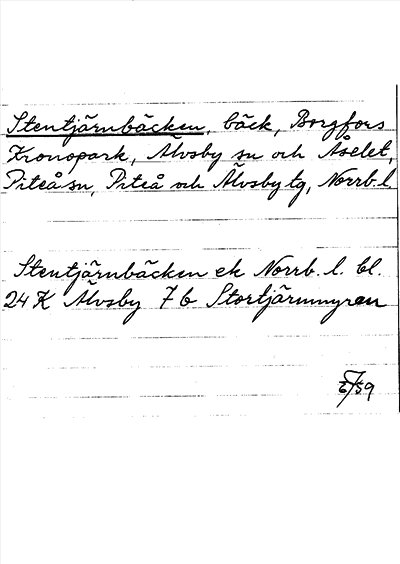 Stentjärnbäcken, bäck, Borgfors
Kronopark, Älvsby sn och Åselet,
Piteå sn, Piteå och Älvsby tg, Norrb. l.
Stentjärnbäcken ek Norrb. l. bl.
24 K Älvsby 7 b Stortjärnmyran
/59